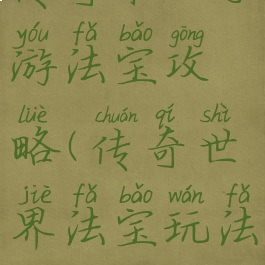 yóu fǎ bǎo gōng
游法宝攻
lüè chuán qí shì
略(传奇世
jiè fǎ bǎo wán fǎ
界法宝玩法